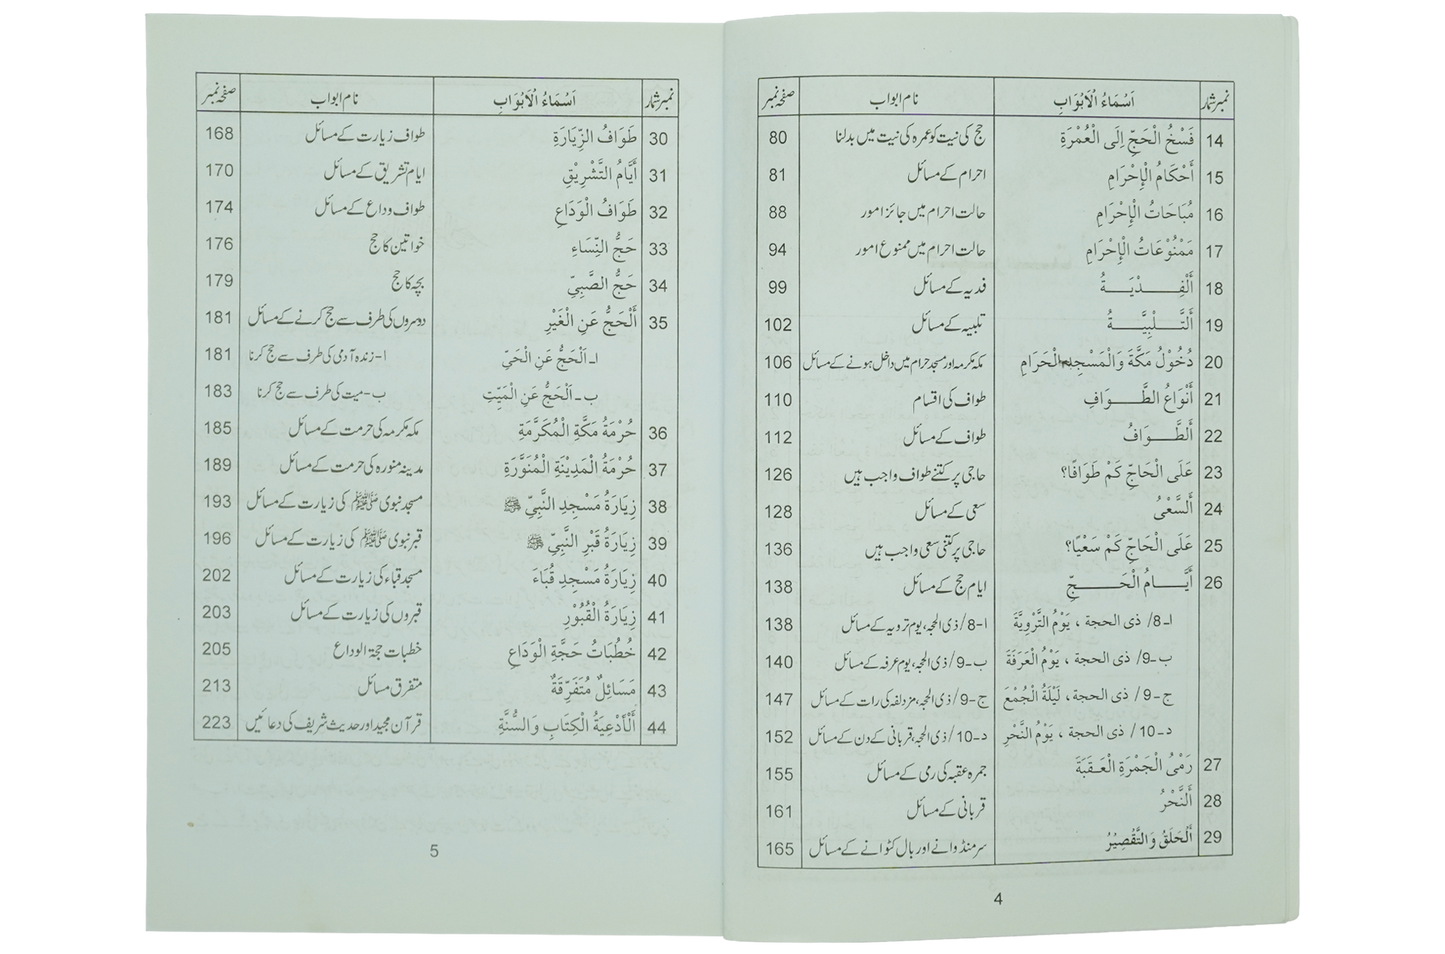 نمبر شمار اَسْمَاءُ الْاَبْوَابِ نام ابواب صفحہ نمبر
14 فَسْخُ الْحَجِّ اِلَى الْعُمْرَةِ حج کی نیت کو عمرہ کی نیت میں بدلنا 80
15 أَحْكَامُ الْإِحْرَامِ احرام کے مسائل 81
16 مُبَاحَاتُ الْإِحْرَامِ حالت احرام میں جائز امور 88
17 مَمْنُوْعَاتُ الْإِحْرَامِ حالت احرام میں ممنوع امور 94
18 أَلْفِـــدْيَـــةُ فدیہ کے مسائل 99
19 أَلتَّـــلْبِيَّـــةُ تلبیہ کے مسائل 102
20 دُخُوْلُ مَكَّةَ وَالْمَسْجِدِ الْحَرَامِ مکہ مکرمہ اور مسجد حرام میں داخل ہونے کے مسائل 106
21 أَنْوَاعُ الطَّـــوَافِ طواف کی اقسام 110
22 أَلطَّـــوَافُ طواف کے مسائل 112
23 عَلَى الْحَاجِّ كَمْ طَوَافًا؟ حاجی پر کتنے طواف واجب ہیں 126
24 أَلسَّعْىُ سعی کے مسائل 128
25 عَلَى الْحَاجِّ كَمْ سَعْيًا؟ حاجی پر کتنی سعی واجب ہیں 136
26 أَيَّـــامُ الْحَـــجِّ ایام حج کے مسائل 138
ا-8/ ذى الحجة ، يَوْمُ التَّرْوِيَّةَ ا-8/ ذی الحجہ، یوم ترویہ کے مسائل 138
ب-9/ ذى الحجة ، يَوْمُ الْعَرَفَةَ ب-9/ ذی الحجہ، یوم عرفہ کے مسائل 140
ج-9/ ذى الحجة، لَيْلَةُ الْجُمْعَ ج-9/ ذی الحجہ، مزدلفہ کی رات کے مسائل 147
د-10/ ذى الحجة ، يَوْمُ النَّحْرِ د-10/ ذی الحجہ، قربانی کے دن کے مسائل 152
27 رَمْىُ الْجَمْرَةِ الْعَـقَبَةَ جمرہ عقبہ کی رمی کے مسائل 155
28 أَلنَّحْرُ قربانی کے مسائل 161
29 أَلْحَلَقُ وَالتَّقْصِيْرُ سر منڈوانے اور بال کٹوانے کے مسائل 165
4
نمبر شمار اَسْمَاءُ الْاَبْوَابِ نام ابواب صفحہ نمبر
30 طَوَافُ الزِّيَارَةِ طواف زیارت کے مسائل 168
31 أَيَّامُ التَّشْرِيْقِ ایام تشریق کے مسائل 170
32 طَوَافُ الْوَدَاعِ طواف وداع کے مسائل 174
33 حَجُّ النِّسَاءِ خواتین کا حج 176
34 حَجُّ الصَّبِيِّ بچہ کا حج 179
35 أَلْحَجُّ عَنِ الْغَيْرِ دوسروں کی طرف سے حج کرنے کے مسائل 181
ا-اَلْحَجُّ عَنِ الْحَيِّ ا-زندہ آدمی کی طرف سے حج کرنا 181
ب-اَلْحَجُّ عَنِ الْمَيِّتِ ب-میت کی طرف سے حج کرنا 183
36 حُرْمَةُ مَكَّةِ الْمُكَرَّمَةِ مکہ مکرمہ کی حرمت کے مسائل 185
37 حُرْمَةُ الْمَدِيْنَةِ الْمُنَوَّرَةِ مدینہ منورہ کی حرمت کے مسائل 189
38 زِيَارَةُ مَسْجِدِ النَّبِيِّ ﷺ مسجد نبوی ﷺ کی زیارت کے مسائل 193
39 زِيَارَةُ قَبْرِ النَّبِيِّ ﷺ قبر نبوی ﷺ کی زیارت کے مسائل 196
40 زِيَارَةُ مَسْجِدِ قُبَاءَ مسجد قباء کی زیارت کے مسائل 202
41 زِيَارَةُ الْقُبُوْرِ قبروں کی زیارت کے مسائل 203
42 خُطُبَاتُ حَجَّةِ الْوَدَاعِ خطبات حجۃ الوداع 205
43 مَسَائِلٌ مُتَفَرِّقَةٌ متفرق مسائل 213
44 أَلْأَدْعِيَةُ الْكِتَابِ وَالسُّنَّةِ قرآن مجید اور حدیث شریف کی دعائیں 223
5